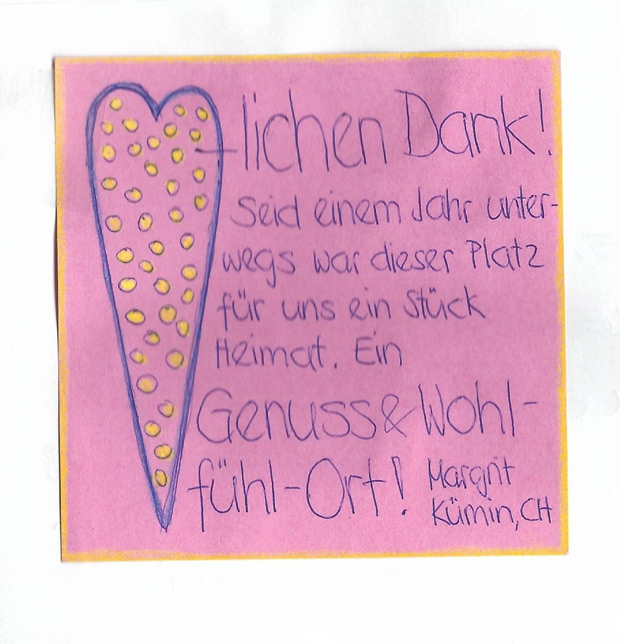 -lichen Dank!
Seid einem Jahr unter-
wegs war dieser Platz
für uns ein Stück
Heimat. Ein
Genuss & Wohl-
fühl-Ort! Margrit
Kümin, CH